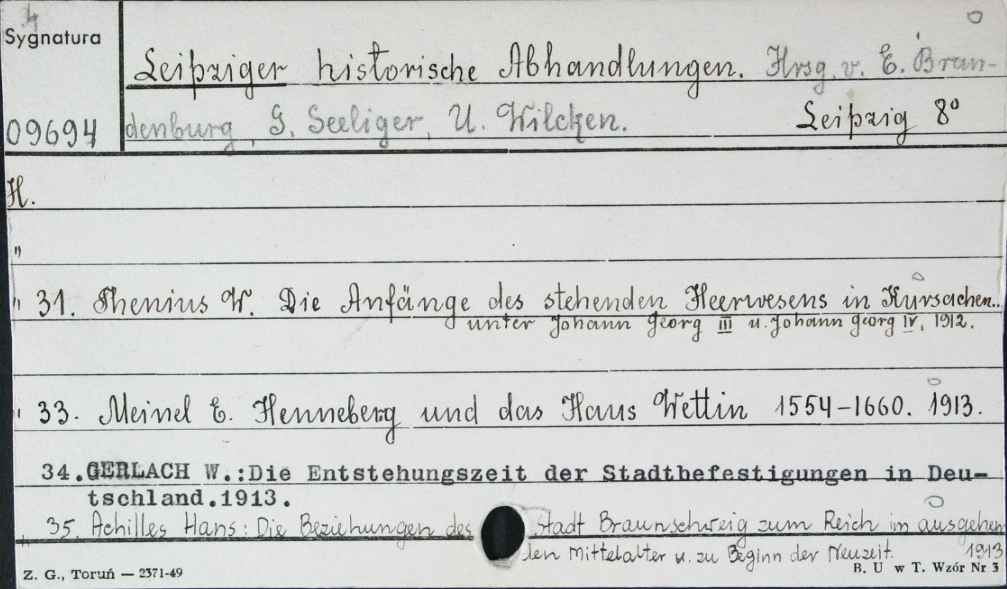 4
Sygnatura
09694
Leipziger historische Abhandlungen. Hrsg. v. E. Bran-
denburg, G. Seeliger, U. Wilcken. Leipzig 8°
H.
"
" 31. Thenius W. Die Anfänge des stehenden Heerwesens in Kursachen..
unter Johann Georg III u. Johann Georg IV, 1912.
" 33. Meinel E. Henneberg und das Haus Wettin 1554-1660. 1913.
34.GERLACH W.:Die Entstehungszeit der Stadtbefestigungen in Deu-
tschland.1913.
" 35. Achilles Hans: Die Beziehungen des Stadt Braunschweig zum Reich im ausgehen
den Mittelalter u. zu Beginn der Neuzeit. 1913
Z. G., Toruń — 2371-49
B. U w T. Wzór Nr 3